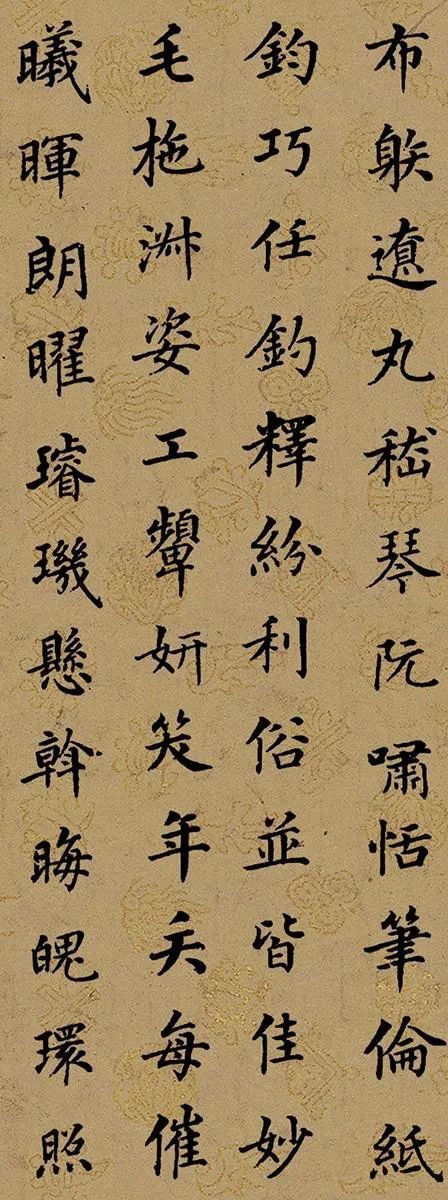 布䠶遼丸嵇琴阮嘯恬筆倫紙
鈞巧任釣釋紛利俗並皆佳妙
毛施淑姿工顰妍笑年矢每催
曦暉朗曜璿璣懸斡晦魄環照